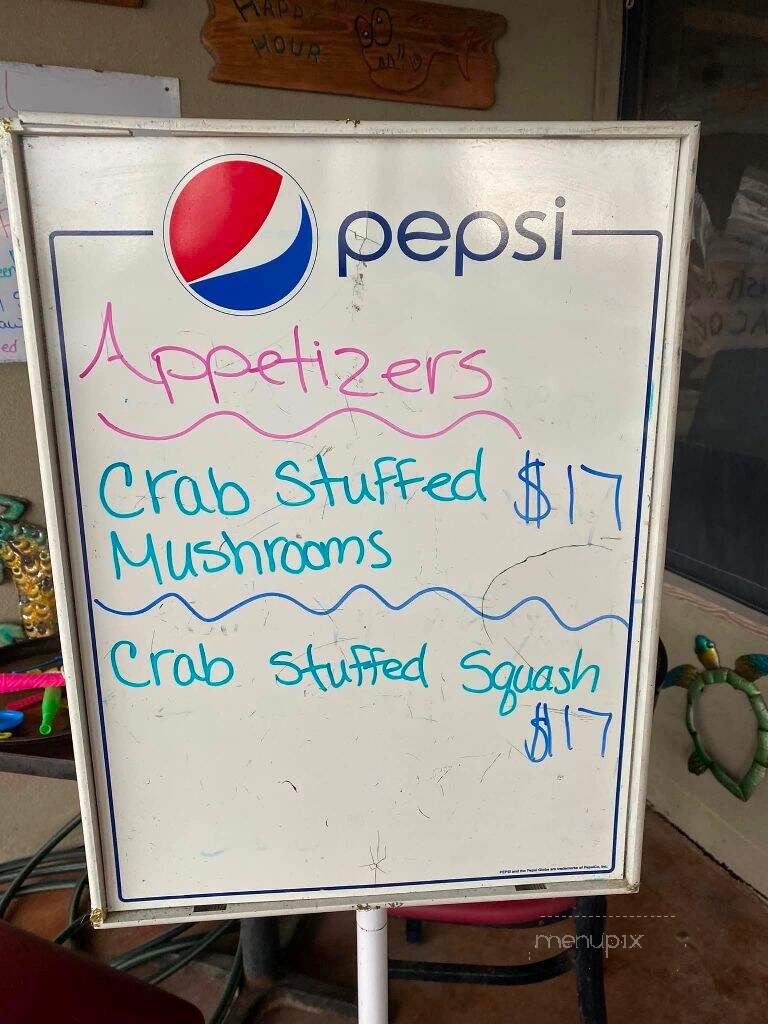 HAPPY
HOUR
pepsi
Appetizers
Crab Stuffed $17
Mushrooms
Crab Stuffed Squash
$17
PEPSI and the Pepsi Globe are trademarks of PepsiCo, Inc.
menupix